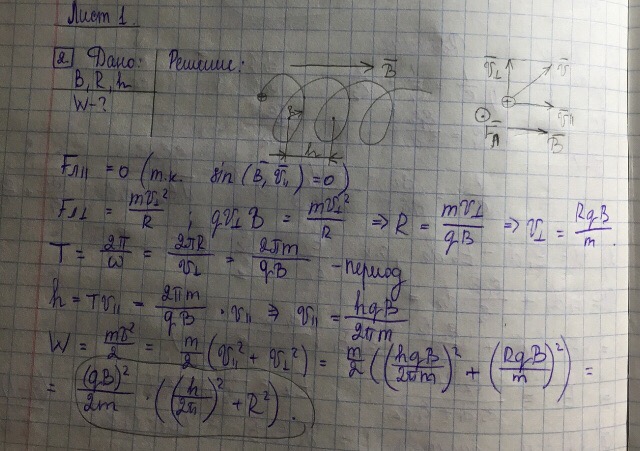 Лист 1.
2 Дано: Решение:
B, R, h
W-?
B̄
R
h
v̄⊥ v̄
v̄||
F̄л B̄
Fл|| = 0 (т.к. sin(B̄, v̄||) = 0)
Fл⊥ = mv⊥²/R ; qv⊥B = mv⊥²/R ⇒ R = mv⊥/qB ⇒ v⊥ = RqB/m.
T = 2π/ω = 2πR/v⊥ = 2πm/qB - период
h = Tv|| = 2πm/qB · v|| ⇒ v|| = hqB/2πm
W = mv²/2 = m/2 (v||² + v⊥²) = m/2 ((hqB/2πm)² + (RqB/m)²) =
= (qB)²/2m · ((h/2π)² + R²).